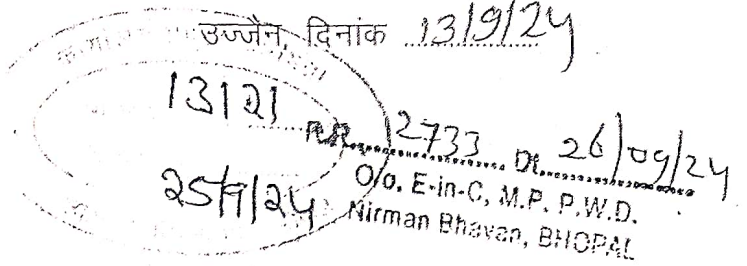 उज्जैन, दिनांक 13/9/24
13121
R.R. 12733 Dt. 26/09/24
25/9/24
O/o. E-in-C, M.P. P.W.D.
Nirman Bhavan, BHOPAL